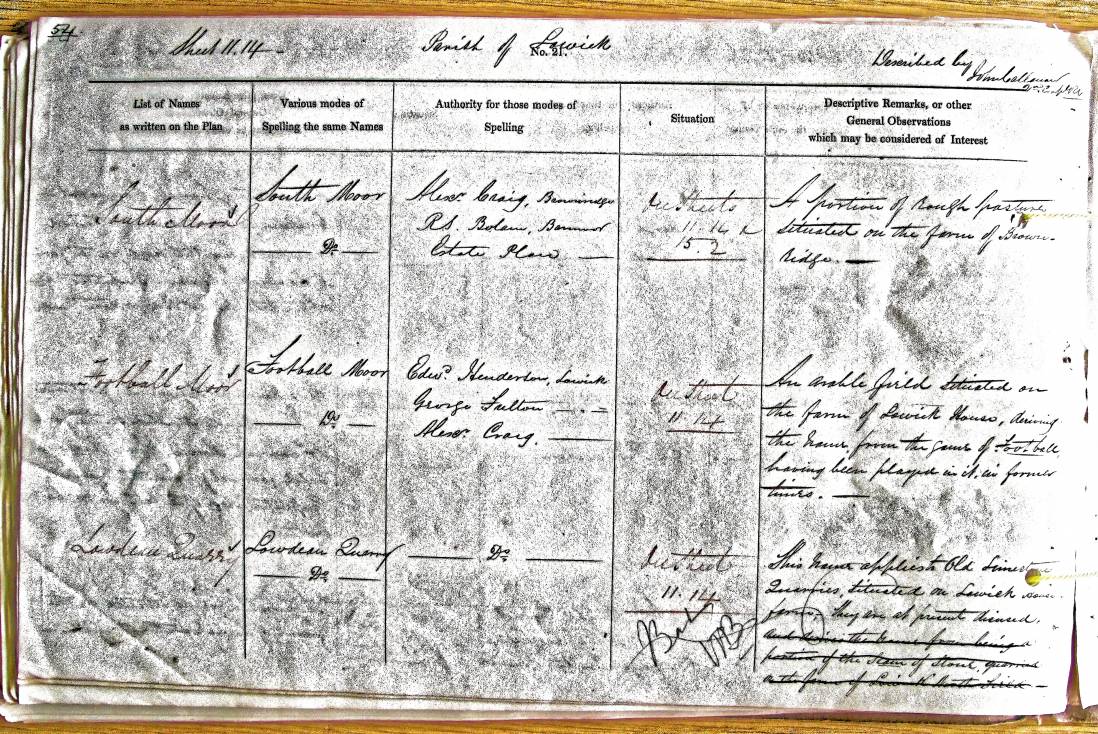 54
Sheet 11.14 -
Parish of Lowick
No. 21.
Described by
List of Names
as written on the Plan
Various modes of
Spelling the same Names
Authority for those modes of
Spelling
Situation
Descriptive Remarks, or other
General Observations
which may be considered of Interest
South Moor
South Moor
Do
Alexr. Craig, Brownridge
R.S. Bolam, Barmoor
Estate Plan
Sheets
11.14 &
15.2
A portion of Rough pasture
situated on the farm of Brown-
ridge.
Football Moor
Football Moor
Do
Edwd. Henderson, Lowick
George Fulton — " —
Alexr. Craig.
Sheet
11.14
An arable field situated on
the farm of Lowick House, deriving
the name from the game of Football
having been played in it, in former
times.
Lowdean Quarry
Lowdean Quarry
Do
Do
Sheet
11.14
This name applies to Old Limestone
Quarries, situated on Lowick House
farm. They are at present disused,
and the name from being a
portion of the seam of stone, quarried
on the farm of Lowick North Field -